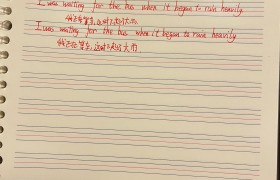 I was waiting for the bus when it began to rain heavily
我正在等车,这时下起了大雨.
I was waiting for the bus when it began to rain heavily.
我正在等车,这时下起了大雨.